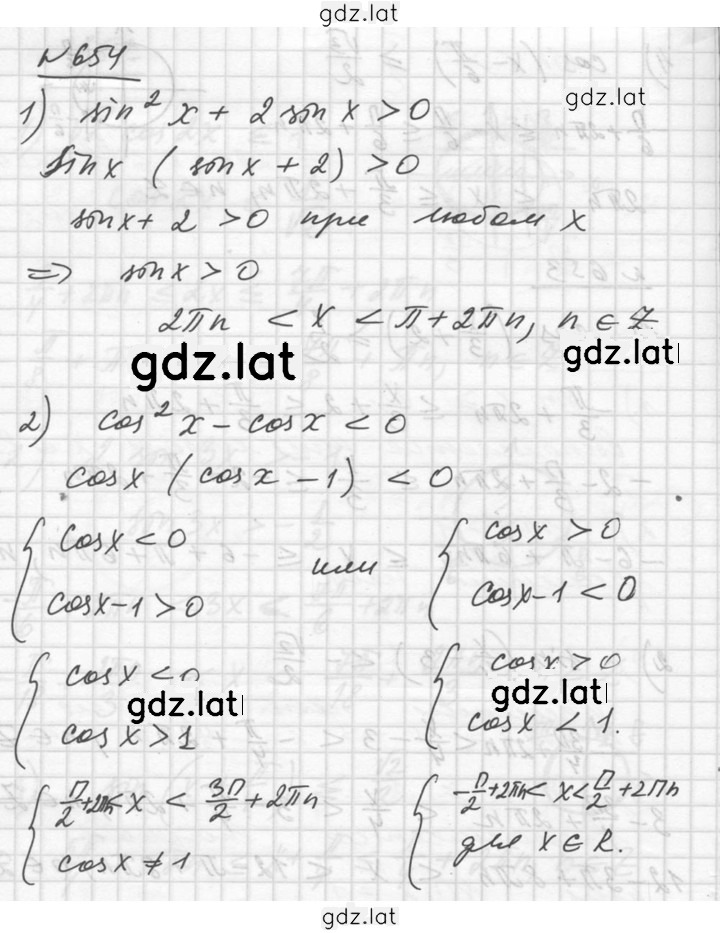 gdz.lat
№654
1) sin² x + 2 sin x > 0
gdz.lat
sin x (sin x + 2) > 0
sin x + 2 > 0 при любом x
⇒ sin x > 0
2πn < x < π + 2πn, n ∈ Z
gdz.lat gdz.lat
2) cos² x - cos x < 0
cos x (cos x - 1) < 0
{ cos x < 0 или { cos x > 0
cos x - 1 > 0 cos x - 1 < 0
{ cos x < 0 { cos x > 0
gdz.lat gdz.lat
cos x > 1 cos x < 1.
{ π/2 + 2πn < x < 3π/2 + 2πn { -π/2 + 2πn < x < π/2 + 2πn
cos x ≠ 1 для x ∈ R.
gdz.lat